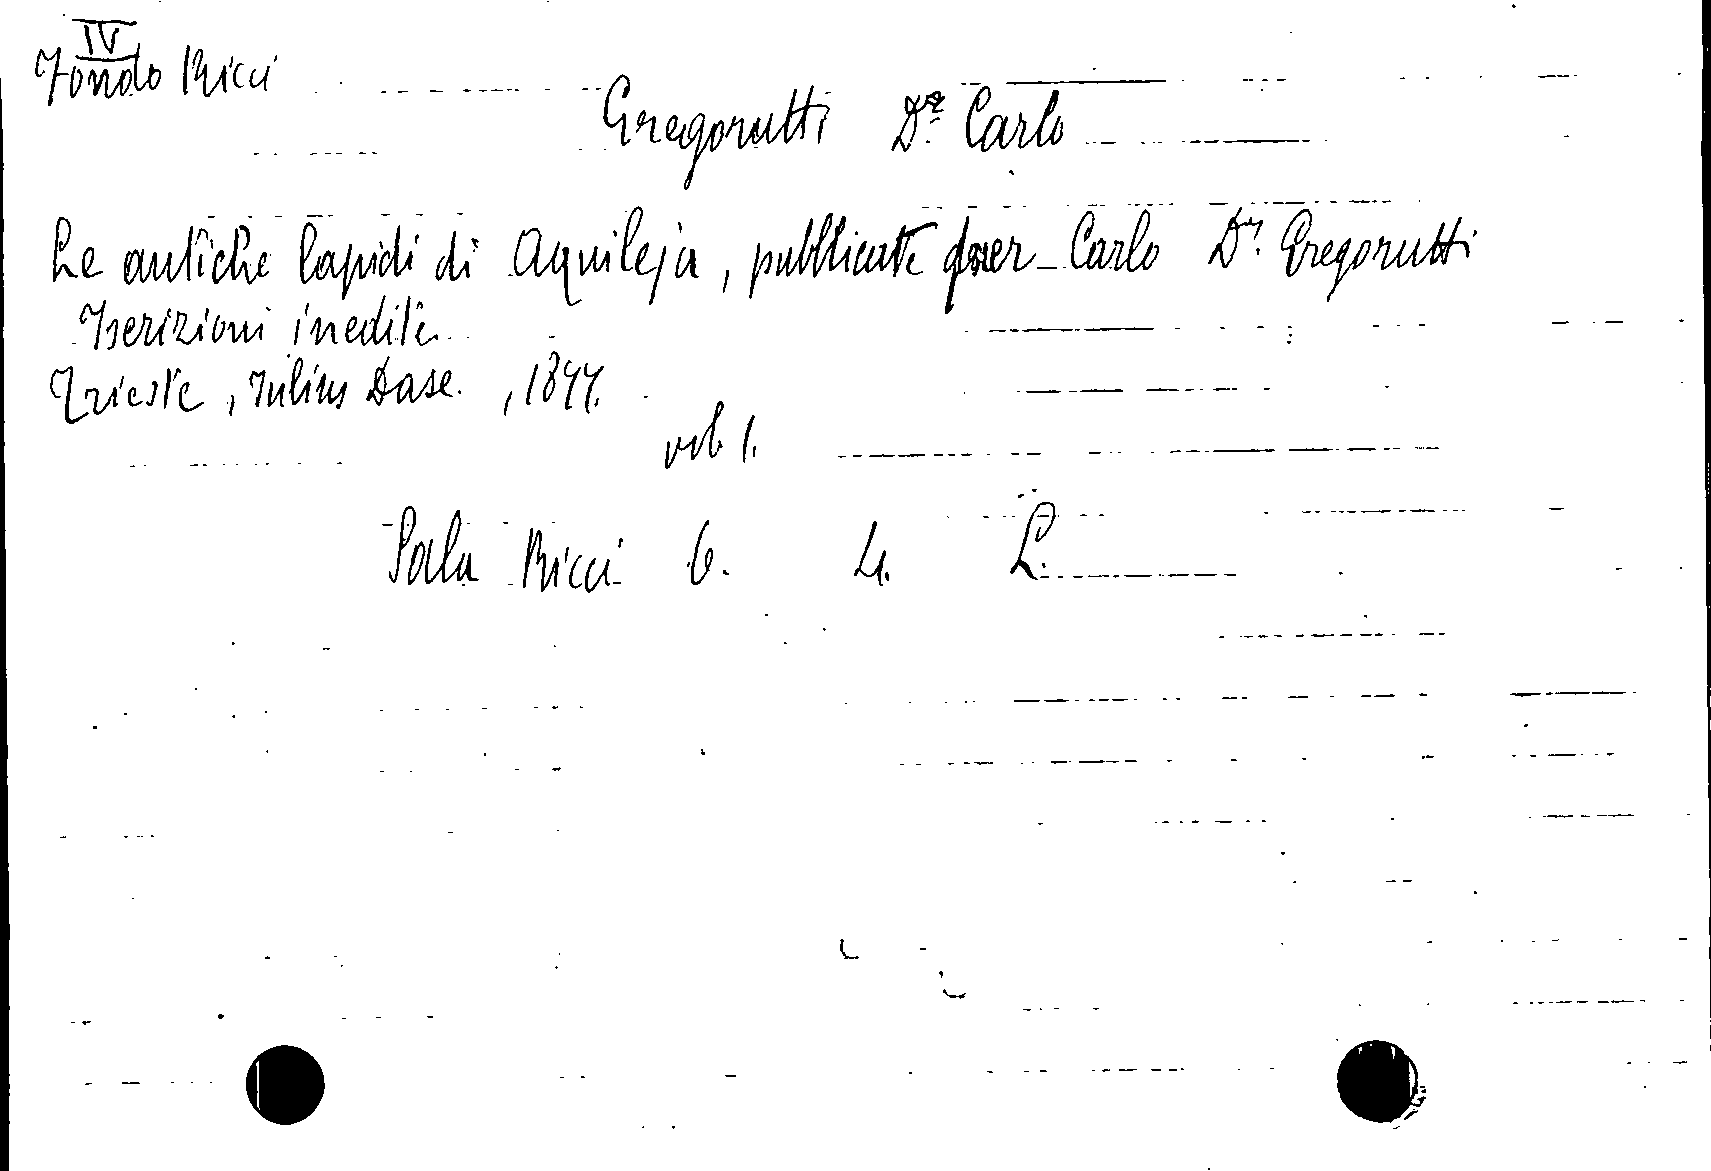 IV
Fondo Ricci
Gregorutti Dr. Carlo
Le antiche lapidi di Aquileja, pubblicate per Carlo Dr. Gregorutti
Iscrizioni inedite
Trieste, Julius Dase., 1877.
vol. 1.
Sala Ricci 6. 4. L.